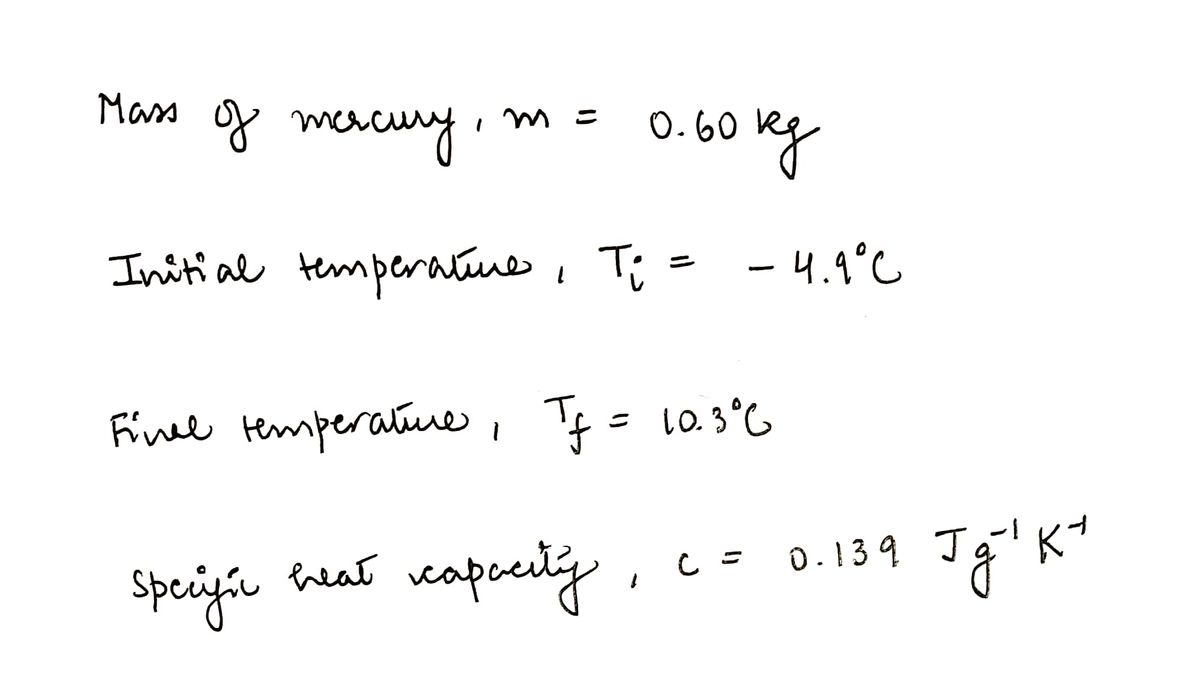 Mass of mercury, m = 0.60 kg
Initial temperature, Tᵢ = - 4.9°C
Final temperature, T_f = 10.3°C
Specific heat capacity, c = 0.139 Jg⁻¹ K⁻¹